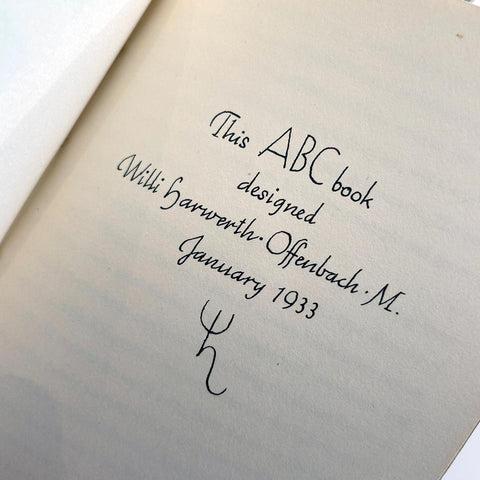 This ABC book
designed
Willi Harwerth · Offenbach · M.
January 1933